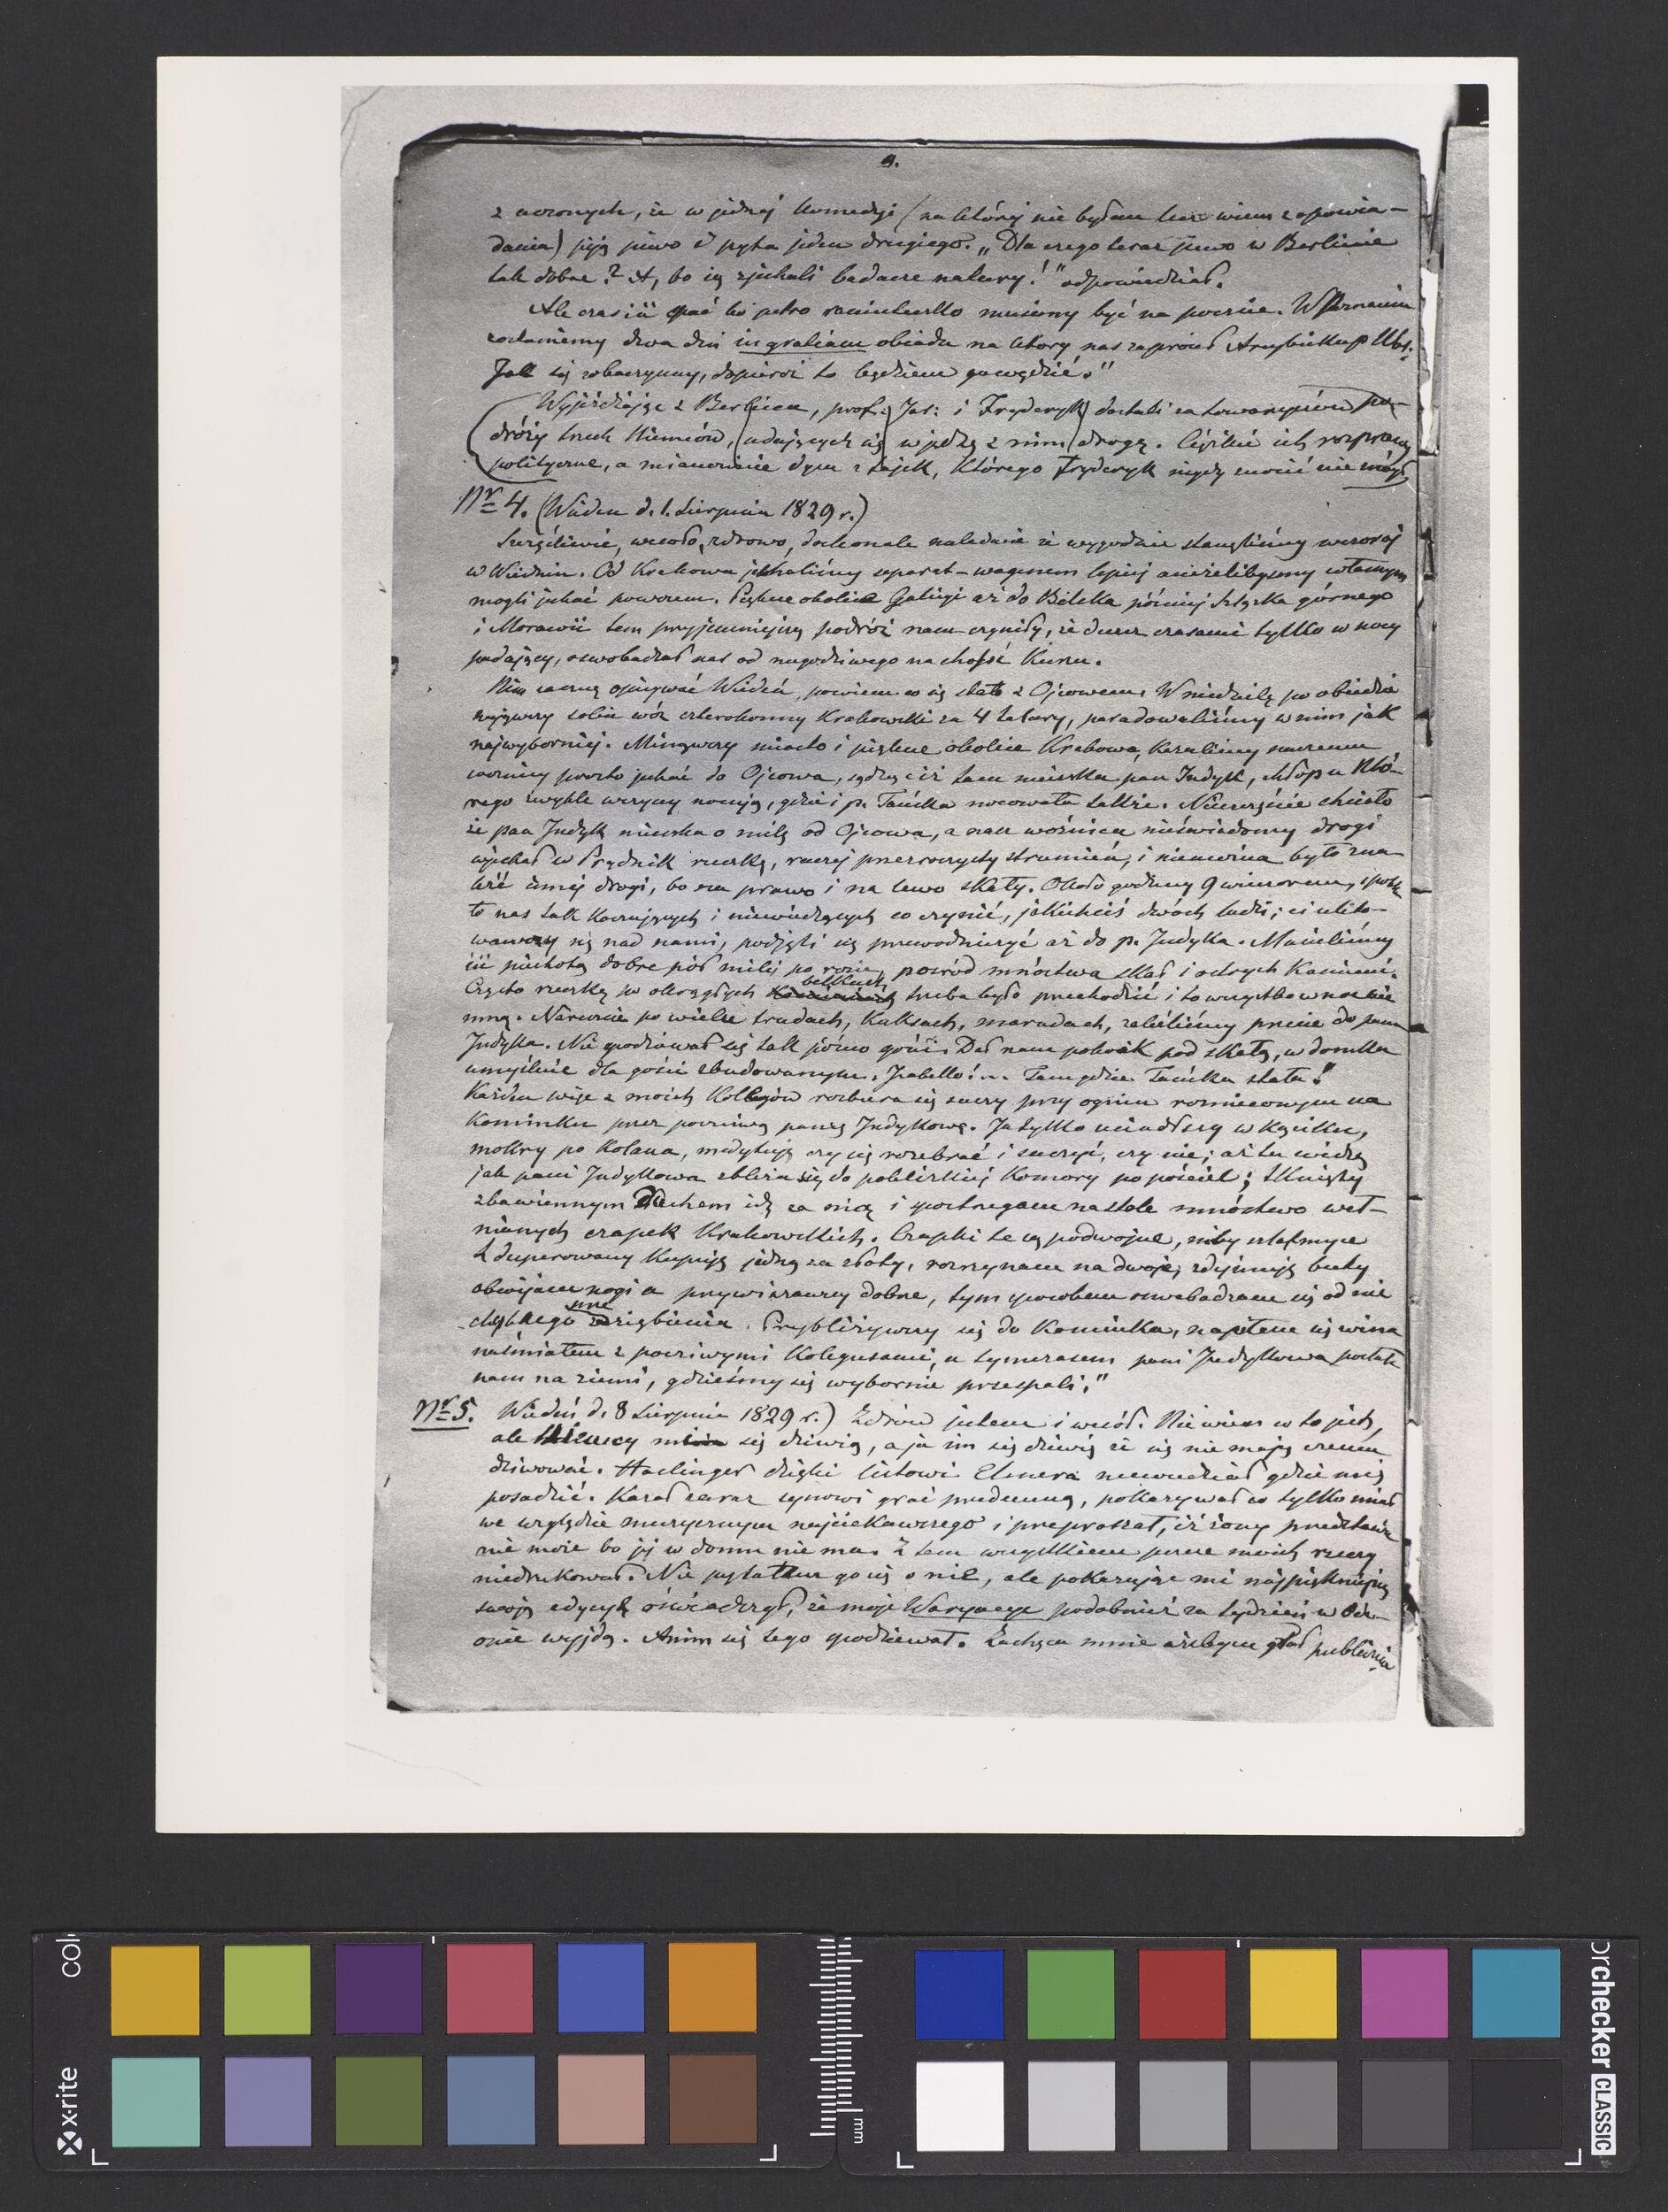 9.
z uczonych, że w jednej komedyi (na której nie byłem lecz wiem z opowia-
dania) piją piwo i pyta jeden drugiego. „Dla czego teraz piwo w Berlinie
tak dobre? A, bo się zjechali badacze natury!" odpowiedział.
Ale czas iść spać bo jutro raniuteńko musiemy być na poczcie. W Poznaniu
zostaniemy dwa dni in gratiam obiadu na który nas zaprosił Arcybiskup Wol:
Jak się zobaczymy, dopieroż to będziem gawędzić."
Wyjeżdżając z Berlina, prof: Jar: i Fryderyk dostali za towarzyszów po-
dróży trzech Niemców, udających się w jedną z nimi drogę. Ciężkie ich rozprawy
polityczne, a mianowicie dym z fajek, którego Fryderyk nigdy znosić nie mógł
Nr 4. (Wiedeń d. 1. Sierpnia 1829 r.)
Szczęśliwie, wesoło, zdrowo, doskonale nieledwie że wygodnie stanęliśmy wczoraj
w Wiedniu. Od Krakowa jechaliśmy separat-wagenem lepiej aniżelibyśmy własnym
mogli jechać powozem. Piękne okolice Galicyi aż do Bielska później Szląska górnego
i Morawii tem przyjemniejszą podróż nam czyniły, że deszcz czasami tylko w nocy
padający, oswobadzał nas od niegodziwego nachodzić kurzu.
Nim zacznę opisywać Wiedeń, powiem co się stało z Ojcowem. W niedzielę po obiedzie
najęwszy sobie wóz czterokonny Krakowski za 4 talary, paradowaliśmy w nim jak
najwyborniej. Minąwszy miasto i piękne okolice Krakowa, kazaliśmy naszemu
woźnicy prosto jechać do Ojcowa, sądząc iż tam mieszka pan Indyk, chłop u któ-
rego zwykle wszyscy nocują, gdzie i p. Tańska nocowała także. Nieszczęście chciało
że pan Indyk mieszka o milę od Ojcowa, a nasz woźnica nieświadomy drogi
wjechał w Prądnik rzeczkę, raczej przezroczysty strumień, i niemożna było zna-
leść innej drogi, bo na prawo i na lewo skały. Około godziny 9 wieczorem, spotka
to nas tak koczujących i niewiedzących co czynić, jakichciś dwóch ludzi; ci ulito-
wawszy się nad nami, podjęli się przewodniczyć aż do p. Indyka. Musieliśmy
iść piechotą dobre pół mili po rosie, pośród mnóstwa skał i ostrych kamieni.
Często rzeczkę po okrągłych belkach trzeba było przechodzić i to wszystko w noc cie
mną. Nareszcie po wielu trudach, kuksach, marudach, zaleźliśmy przecie do pana
Indyka. Nie spodziewał się tak późno gości. Dał nam pokoik pod skałą, w domku
umyślnie dla gości zbudowanym. Izabello!... Tam gdzie Tańska stała!"
Każden więc z moich kollegów rozbiera się suszy przy ogniu roznieconym na
kominku przez poczciwą panią Indykową. Ja tylko usiadłszy w kąciku,
mokry po kolana, medytuję czy się rozebrać i suszyć, czy nie; aż tu widzę
jak pani Indykowa zbliża się do pobliskiej komory po pościel; tknięty
zbawiennym Duchem idę za nią i spostrzegam na stole mnóstwo weł-
nianych czapek krakowskich. Czapki te są podwójne, niby szlafmyce
Zdesperowany kupuję jedną za złoty, rozrzynam na dwoje, zdejmuję buty
obwijam nogi a przywiązawszy dobrze, tym sposobem oswabadzam się od nie
chybnego zaziębienia. Przybliżywszy się do kominka, napiłem się wina
naśmiałem z poczciwymi kolegusami, a tymczasem pani Indykowa posłała
nam na ziemi, gdzieśmy się wybornie przespali."
Nr 5. Wiedeń d. 8 Sierpnia 1829 r.) Zdrów jestem i wesół. Nie wiem co to jest,
ale Niemcy się dziwią, a ja im się dziwię że się nie mają czemu
dziwować. Haslinger dzięki listowi Elsnera niewiedział gdzie mię
posadzić. Kazał zaraz synowi grać przedemną, pokazywał co tylko miał
we względzie muzycznym najciekawszego i przepraszał, iż żony przedstawić
nie może bo jej w domu nie ma. Z tem wszystkiem jeszcze moich rzeczy
niedrukował. Nie pytałem go się o nie, ale pokazując mi najpiękniejszą
swoją edycyę oświadczył, że moje Waryacye podobnież za tydzień w Ode-
onie wyjdą. Anim się tego spodziewał. Zachęca mnie ażebym grał publicznie